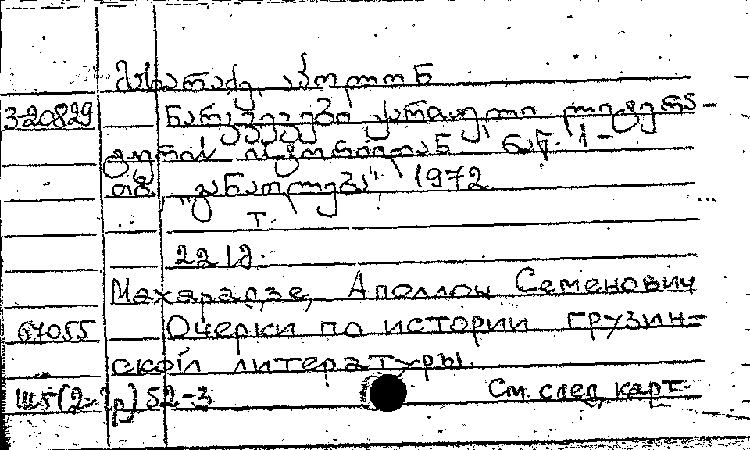 მახარაძე, აპოლონ
3-20829 ნარკვევები ქართული ლიტერა-
ტურის ისტორიიდან ნაწ. 1-
თბ. "განათლება" 1972
т.
221გ.
Махарадзе, Аполлон Семенович
67055 Очерки по истории грузин-
ской литературы.
52-3 См. след. карт.